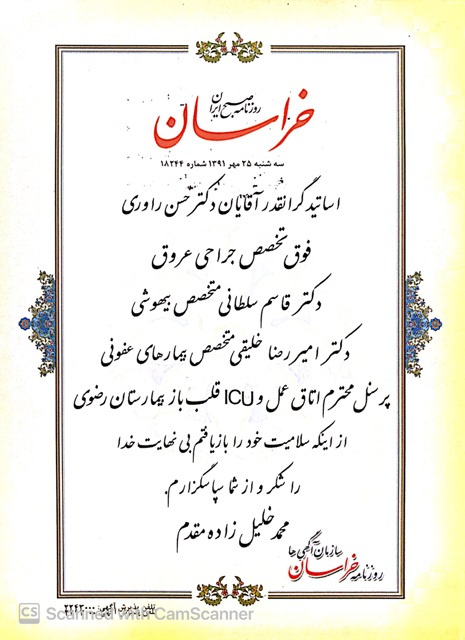 روزنامه صبح ایران
خراسان
سه شنبه ۲۵ مهر ۱۳۹۱ شماره ۱۸۲۴۴
اساتید گرانقدر آقایان دکتر حسن راوری
فوق تخصص جراحی عروق
دکتر قاسم سلطانی متخصص بیهوشی
دکتر امیر رضا خلیقی متخصص بیمارهای عفونی
پرسنل محترم اتاق عمل و ICU قلب باز بیمارستان رضوی
از اینکه سلامیت خود را بازیافتم بی نهایت خدا
را شکر و از شما سپاسگزارم.
محمد خلیل زاده مقدم
سازمان آگهی ها
روزنامه خراسان
تلفن پذیرش آگهی: ۲۲۴۳۰۰۰
CS Scanned with CamScanner